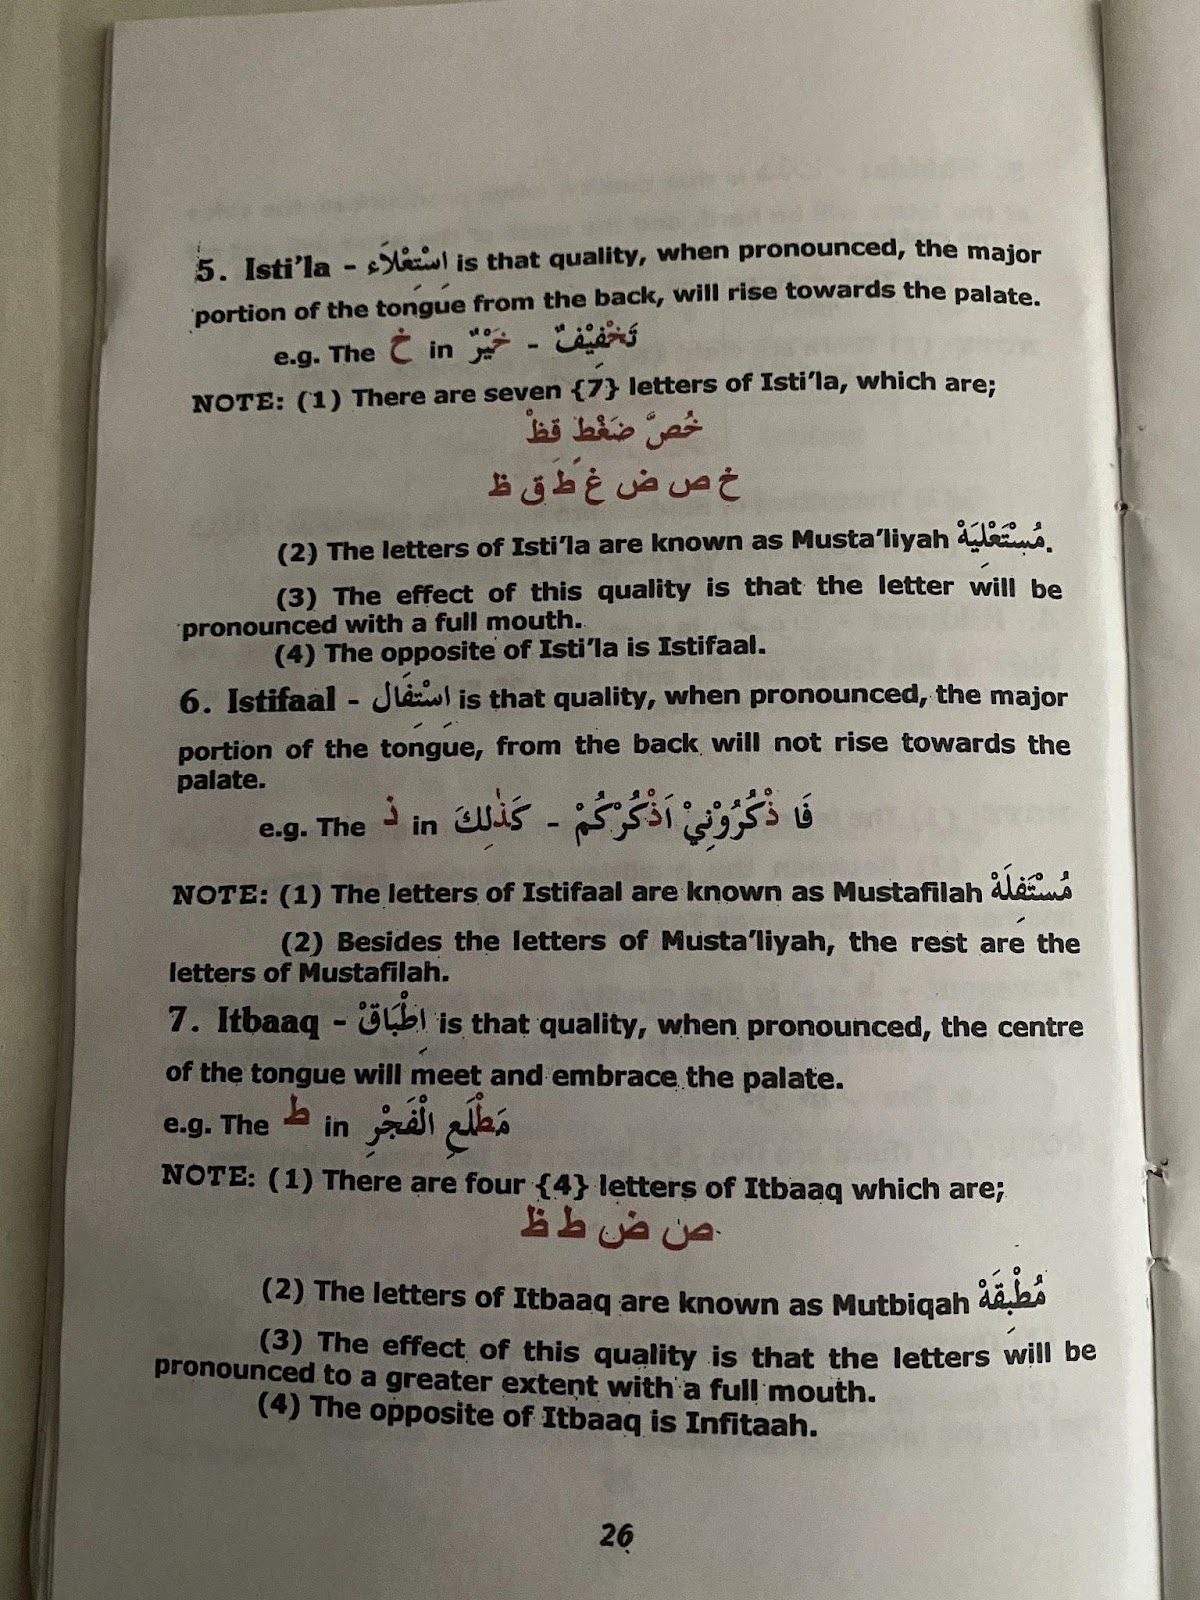 5. Isti'la - اِسْتِعْلَاَء is that quality, when pronounced, the major
portion of the tongue from the back, will rise towards the palate.
e.g. The خ in خَيْرٌ - تَخْفِيْفٌ
NOTE: (1) There are seven {7} letters of Isti'la, which are;
خُصَّ ضَغْطٍ قِظْ
خ ص ض غ ط ق ظ
(2) The letters of Isti'la are known as Musta'liyah مُسْتَعْلِيَهْ.
(3) The effect of this quality is that the letter will be
pronounced with a full mouth.
(4) The opposite of Isti'la is Istifaal.
6. Istifaal - اِسْتِفَال is that quality, when pronounced, the major
portion of the tongue, from the back will not rise towards the
palate.
e.g. The ذ in كَذٰلِكَ - فَا ذْكُرُوْنِيْ اَذْكُرْكُمْ
NOTE: (1) The letters of Istifaal are known as Mustafilah مُسْتَفِلَهْ
(2) Besides the letters of Musta'liyah, the rest are the
letters of Mustafilah.
7. Itbaaq - اِطْبَاقْ is that quality, when pronounced, the centre
of the tongue will meet and embrace the palate.
e.g. The ط in مَطْلَعِ الْفَجْرِ
NOTE: (1) There are four {4} letters of Itbaaq which are;
ص ض ط ظ
(2) The letters of Itbaaq are known as Mutbiqah مُطْبِقَهْ
(3) The effect of this quality is that the letters will be
pronounced to a greater extent with a full mouth.
(4) The opposite of Itbaaq is Infitaah.
26